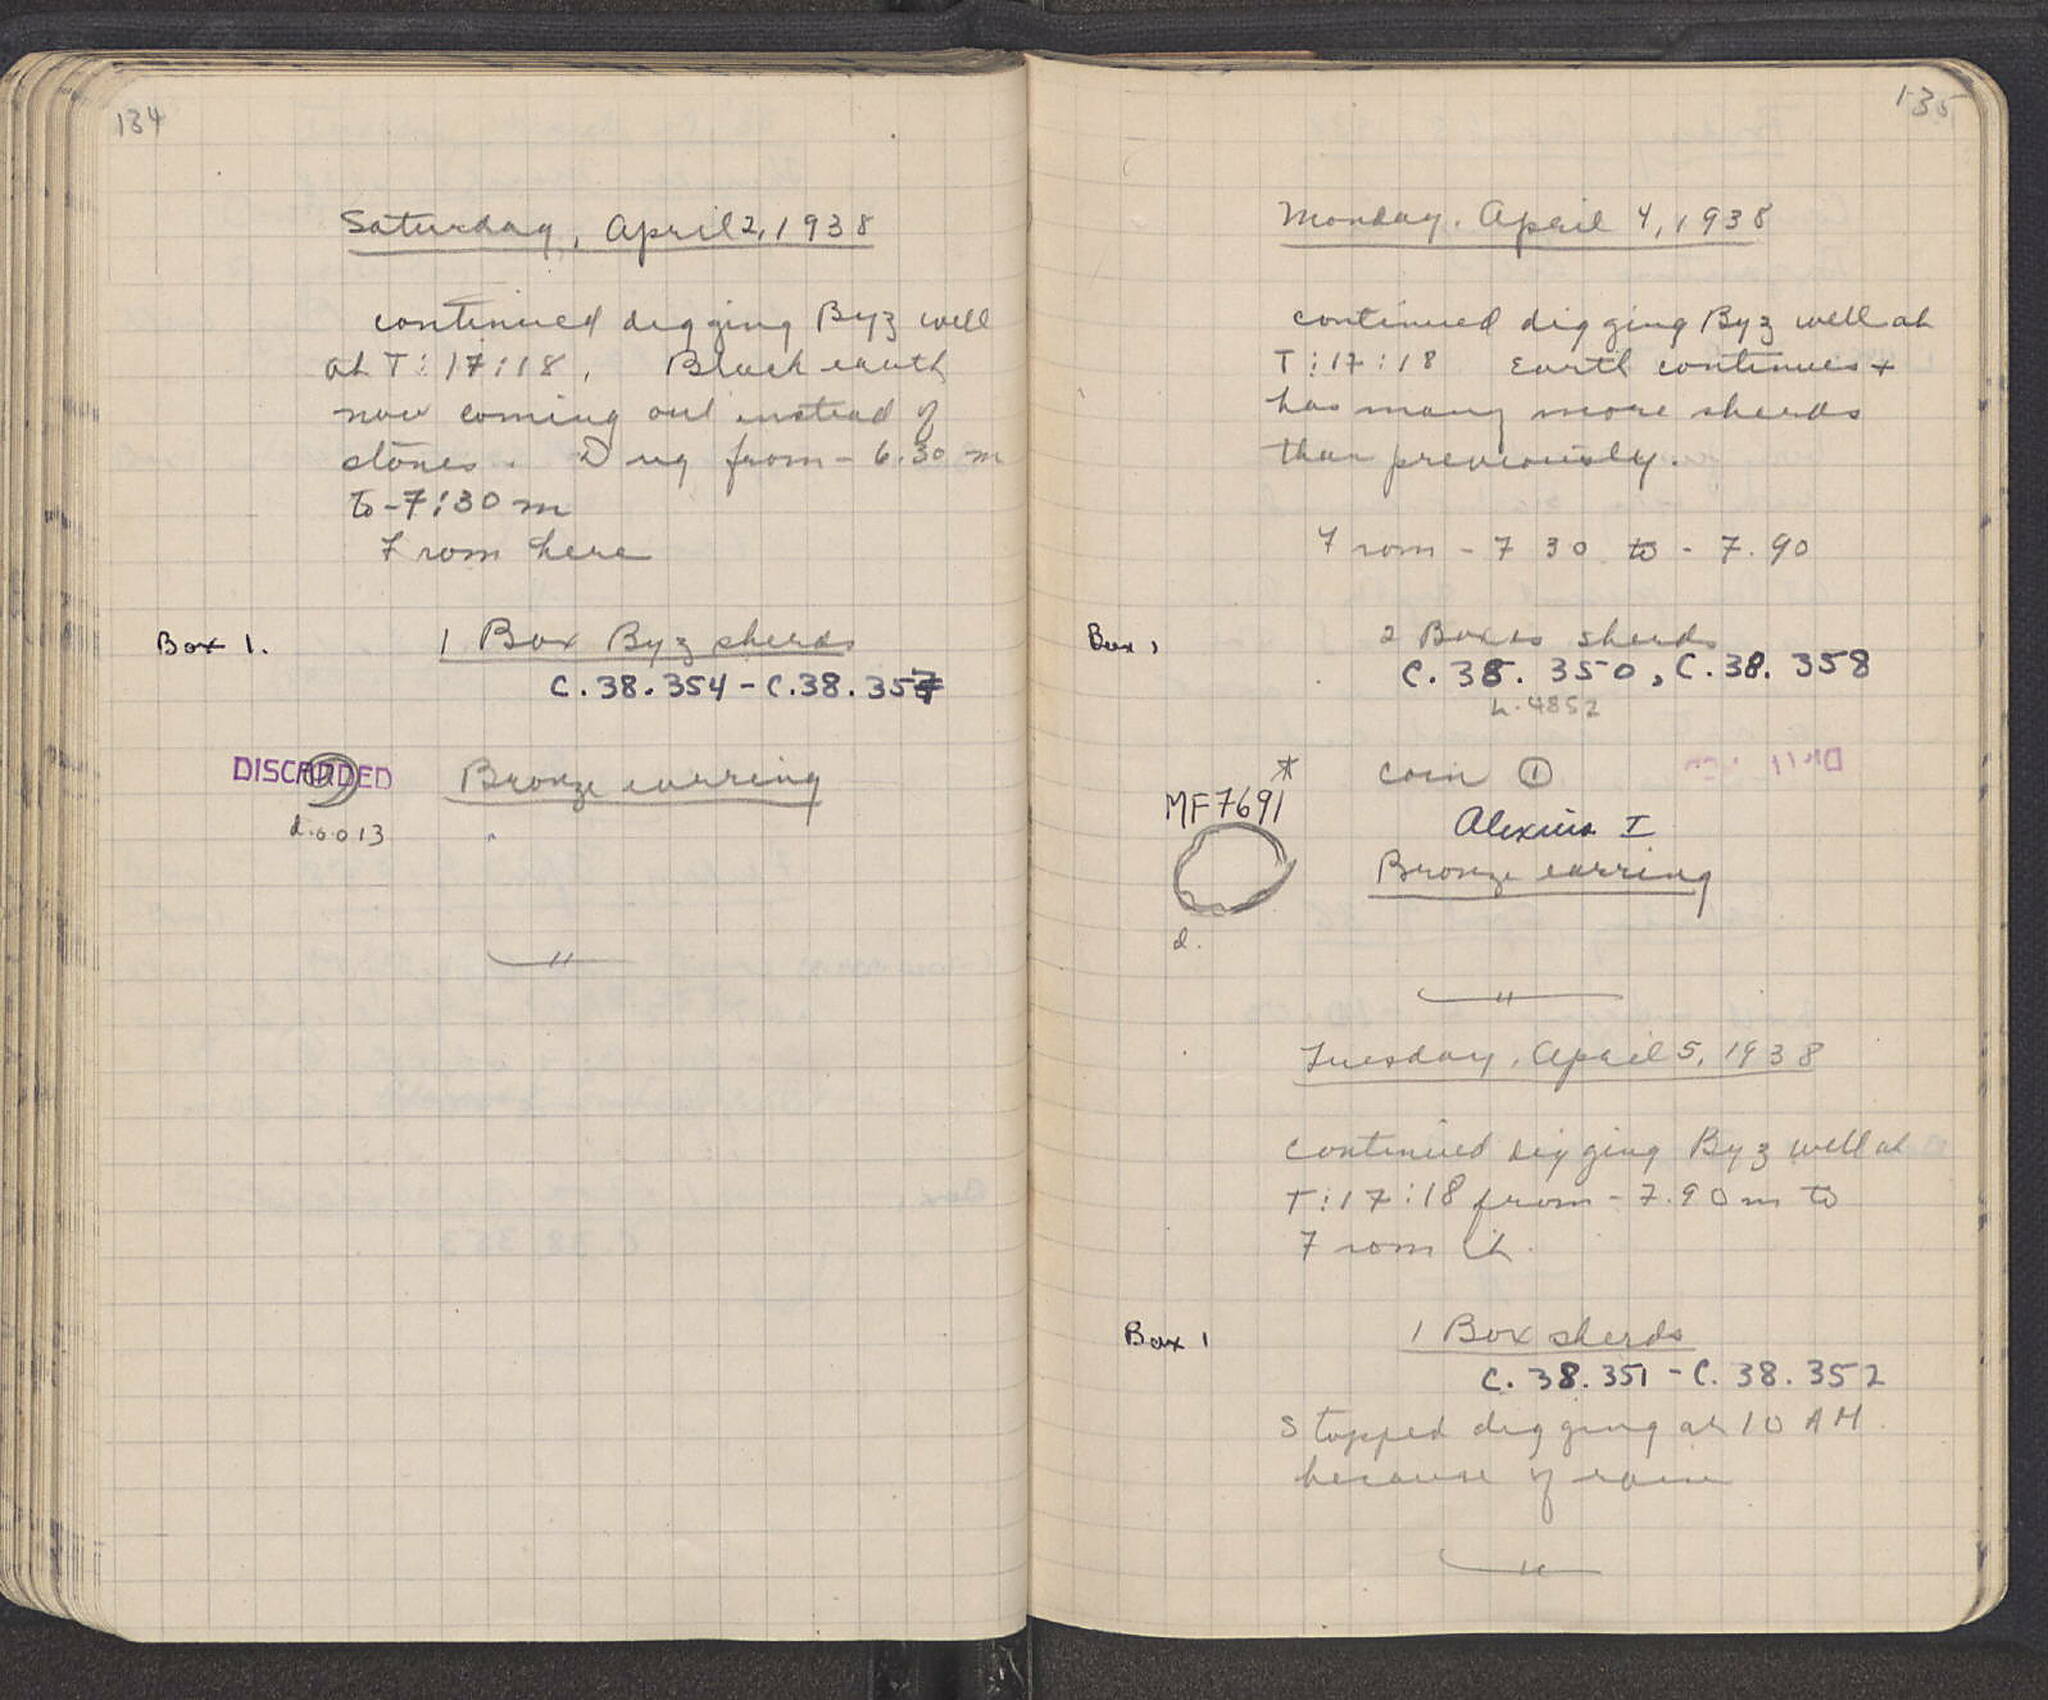 134
Saturday, April 2, 1938
continued digging Byz well
at T:17:18. Black earth
now coming out instead of
stones. Dug from -6.30 m
to -7:30 m
From here
Box 1. 1 Box Byz sherds
C.38.354 - C.38.357
DISCARDED Bronze earring
d. 0.013
135
Monday. April 4, 1938
continued digging Byz well at
T:17:18 Earth continues +
has many more sherds
than previously.
From -7 30 to -7.90
Box 1 2 Boxes sherds
C.38.350, C.38.358
L.4852
coin ①
MF7691 *
Alexius I
Bronze earring
d.
Tuesday, April 5, 1938
continued digging Byz well at
T:17:18 from -7.90 m to
From it.
Box 1 1 Box sherds
C.38.351 - C.38.352
Stopped digging at 10 AM.
because of rain